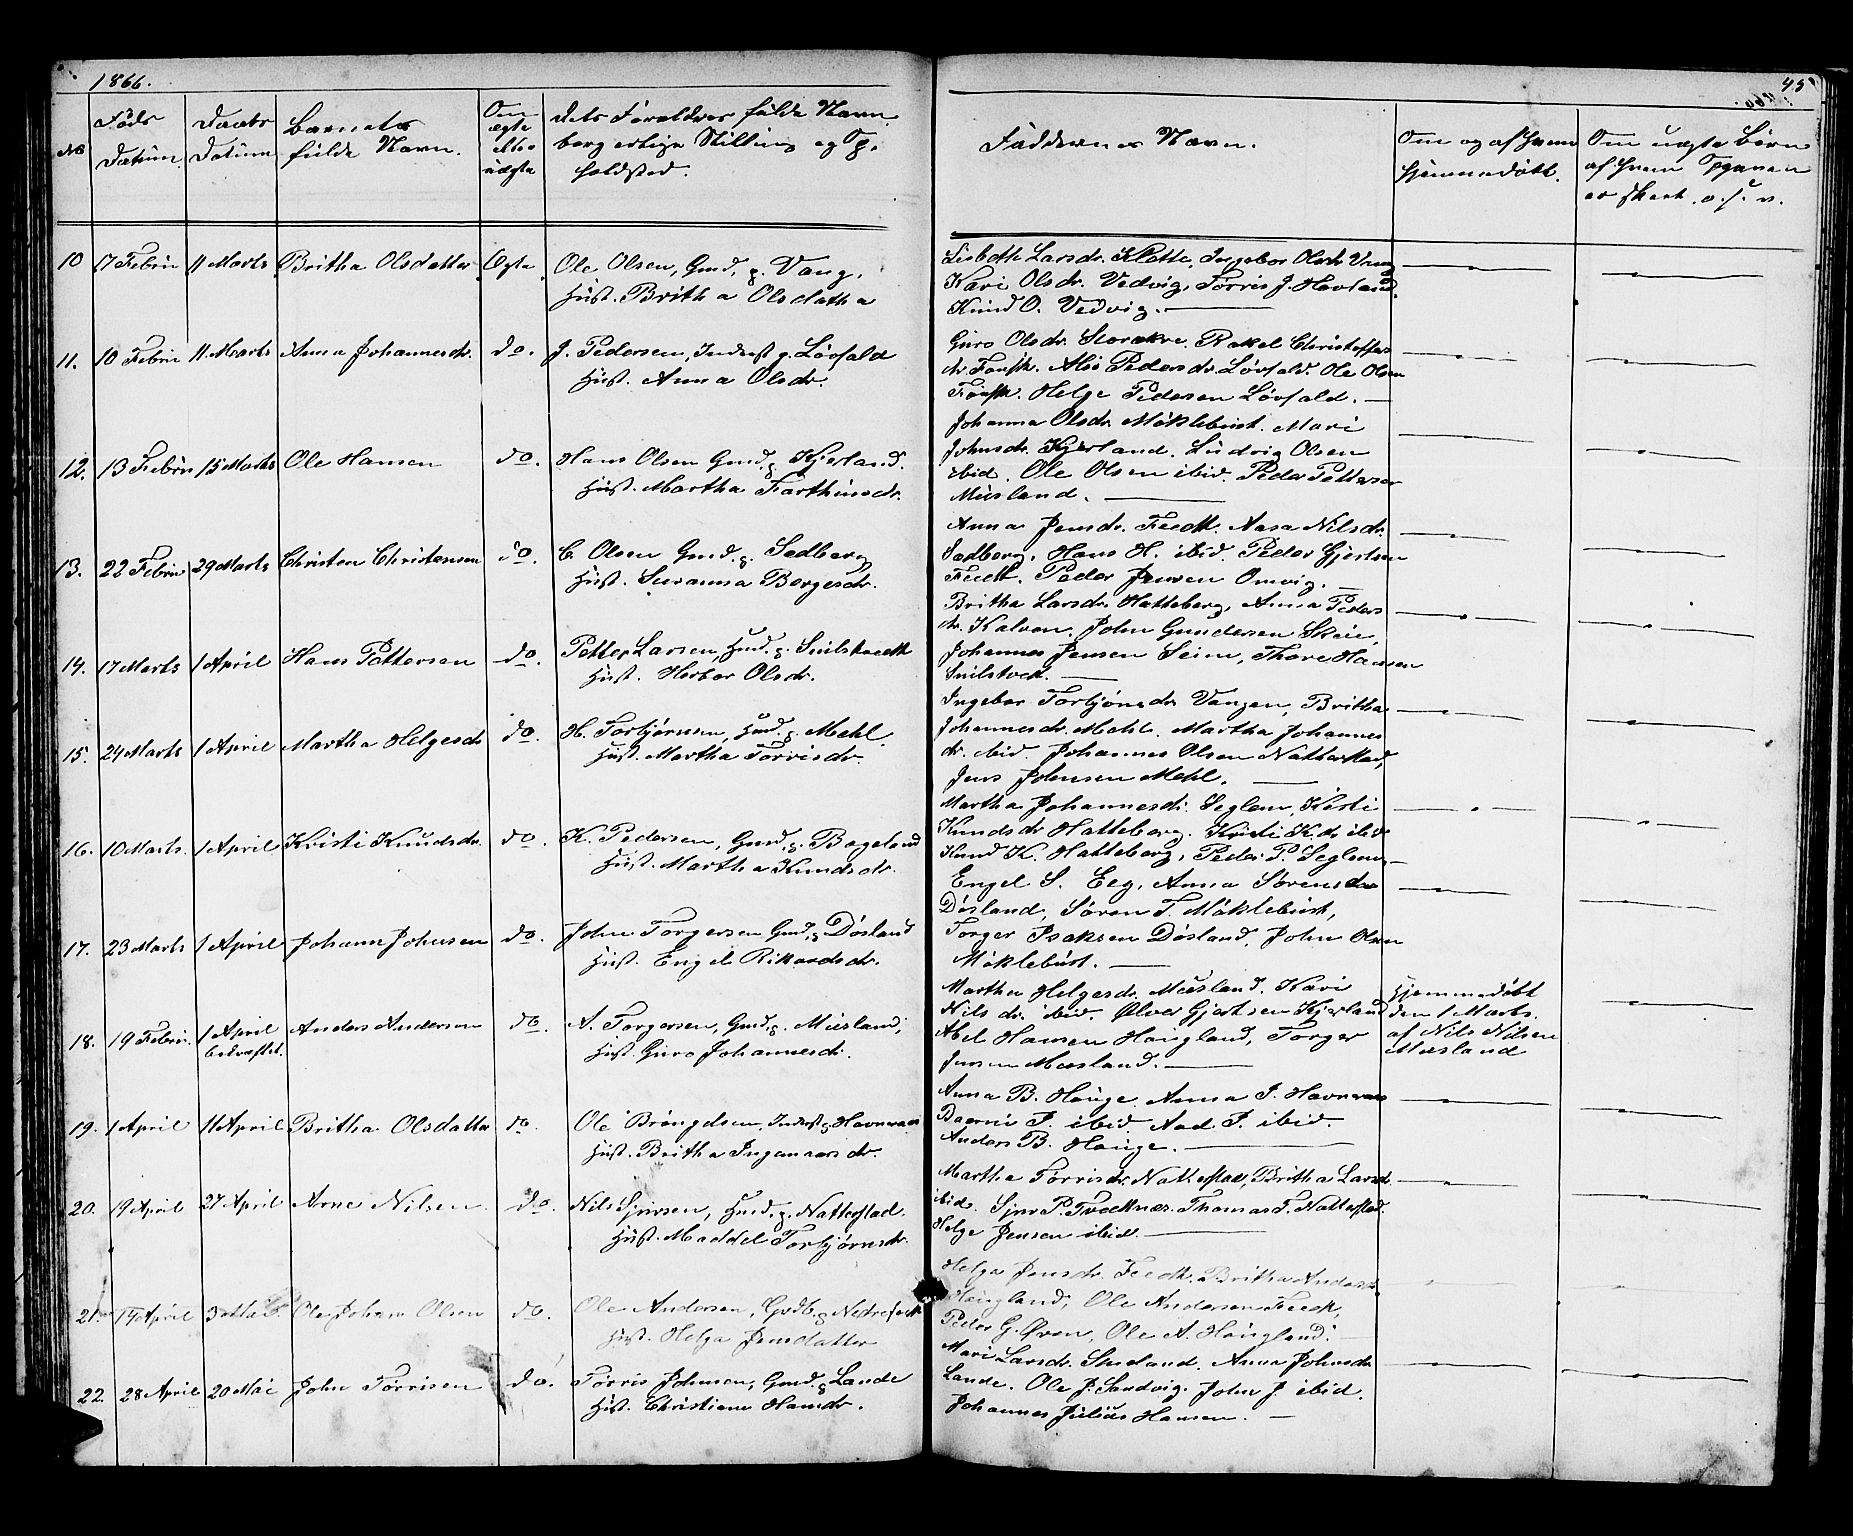 1866.
45
No
Føds
Datum
Daabs
Datum
Barnets
fulde Navn.
Om
ægte
eller
uægte
Dets Forældres fulde Navn
borgerlige Stilling og Op-
holdsted.
Faddernes Navn.
Om og af hvem
hjemmedøbt.
Om uægte Børn
af hvem Opgaven
er skeet o. s. v.
10 17 Febru 11 Marts Britha Olsdatter Ægte Ole Olsen, Gmd, p. Vang,
Hust. Britha Olsdatha
Lisbeth Larsdr. Klette, Ingebor Olsdr Vang
Kari Olsdr. Vedvig, Tørris J. Havland,
Knud O. Vedvig.
11. 10 Febru 11 Marts Anna Johannesdr. do. J. Pedersen, Inderst p. Løvfald
Hust. Anna Olsdr.
Guro Olsdr. Storakre. Rakel Christoffers
dr. Forsth. Alis Pedersdr. Løvfald. Ole Olsen
Helge Pedersen Løvfald.
12. 13 Febru 15 Marts Ole Hansen do. Hans Olsen Gmd. p. Kjerland.
Hust. Martha Farthinsdr.
Johanna Olsdr. Møklebust. Mari
Johnsdr. Kjerland. Ludvig Olsen
ibid. Ole Olsen ibid. Peder Pettersen
Musland.
13. 22 Febru 29 Marts Christen Christensen do C. Olsen Gmd. p. Sedberg
Hust. Susanna Børgesdr.
Anna Jensdr. Feedt. Aasa Nilsdr.
Sædberg. Hans H. ibid. Peder Gjertsen
Feedt. Peder Jensen Omvig.
14. 17 Marts 1 April Hans Pettersen do. Petter Larsen, Hmd. p. Snilstveedt
Hust. Herbor Olsdr.
Britha Larsdr. Hatteberg, Anna Peders
dr. Kalven. John Gundersen Skeie,
Johannes Jensen Seim, Thore Hansen
Snilstvedt.
15. 24 Marts 1 April Martha Helgesdr do. H. Torbjørnsen, Hmd. p. Mehl.
Hust. Martha Tørrisdr.
Ingebor Torbjønsdr Vangen, Britha
Johannesdr. Mehl. Martha Johannes
dr. ibid. Johannes Olsen Natterstad,
Jens Johnsen Mehl.
16. 10 Marts. 1 April Kristi Knudsdr. do. K. Pedersen, Gmd, p. Bogelund
Hust. Martha Knudsdr.
Martha Johannesdr. Seglem, Kisti
Knudsdr Hatteberg. Kristi K.dr ibid
Knud K. Hatteberg, Peder P. Seglem,
17. 23 Marts 1 April Johann Johnsen do. John Torgersen Gmd, p. Døsland
Hust. Engel Rikardsdr.
Engel S. Eeg, Anna Sørensdr
Døsland, Søren T. Møklebust,
Torger Isaksen Døsland, John Olsen
Møklebust.
18. 19 Febru. 1 April Anders Andersen do. A. Torgersen, Gmd. p. Musland,
bekræftet. Hust. Guro Johannesdr.
Martha Helgesdr. Musland. Kari
Nilsdr. ibid. Ølver Gjertsen Kjerland
Abel Hansen Haugland, Torger
Jensen Musland.
Hjemmedøbt
den 1 Marts.
af Nils Nilsen
Musland
19. 1 April 11 April Britha Olsdatter do. Ole Brøngelsen, Inderst p. Havneraas
Hust. Britha Ingemarsdr.
Anna B. Hauge Anna I. Havneraas
I. ibid Aad I. ibid.
Anders B. Hauge.
20. 19 April 27 April Arne Nilsen. do. Nils Sjursen, Hmd. p. Natterstad.
Hust. Maddel Torbjørnsdr.
Martha Tørrisdr. Natterstad, Britha Larsd.
ibid. Sjur P. Tvedtnæs. Thomas T. Natterstad.
Helge Jensen ibid.
21. 14 April 3 Mai Ole Johan Olsen do. Ole Andersen, Gmd. p. Nedrefeedt
Hust. Helga Jensdatter
Helga Jensdr. Feedt. Britha Andersd.
Haugland, Ole Andersen Feedt,
Peder G. Øven, Ole A. Haugland.
22. 28 April 20 Mai John Tørrisen do. Tørris Johnsen, Gmd. p. Lande
Hust. Christiane Hansdr.
Mari Larsdr. Skeeland. Anna Johnsdr
Lande. Ole J. Sandvig. John J. ibid.
Johannes Julius Hansen.